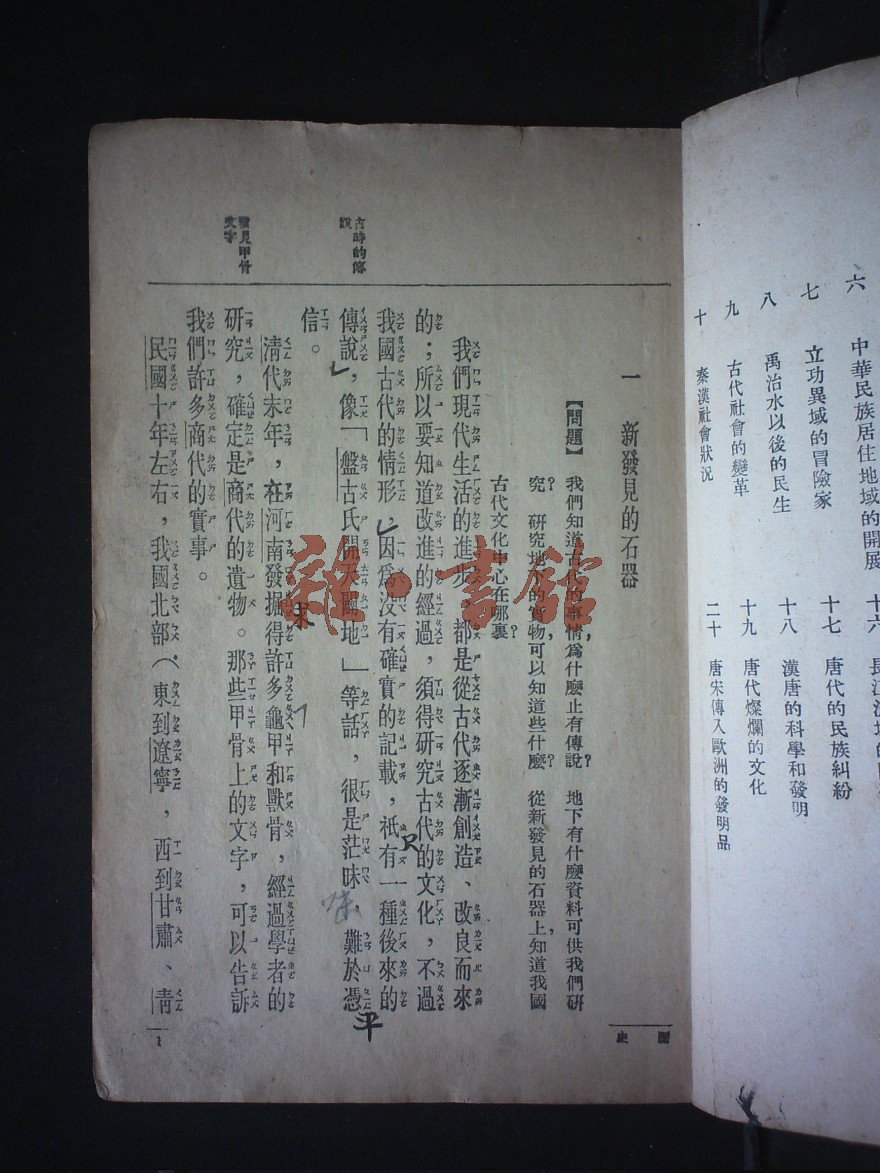 六　中華民族居住地域的開展
七　立功異域的冒險家
八　禹治水以後的民生
九　古代社會的變革
十　秦漢社會狀況
十六　長江流域的
十七　唐代的民族糾紛
十八　漢唐的科學和發明
十九　唐代燦爛的文化
二十　唐宋傳入歐洲的發明品
國史
一　新發見的石器
【問題】我們知道古代的事情，爲什麼止有傳說？　地下有什麼資料可供我們研
究？　研究地下的實物，可以知道些什麼？　從新發見的石器上，知道我國
古代文化中心在哪裏？
我們現代生活的進步，都是從古代逐漸創造、改良而來
的；所以要知道改進的經過，須得研究古代的文化，不過
我國古代的情形，因爲沒有確實的記載，祇有一種後來的
只
古時的傳
說
傳說，像「盤古氏開天闢地」等話，很是茫昧，難於憑
平
信。
末
清代末年，在河南發掘得許多龜甲和獸骨，經過學者的
發見甲骨
文字
研究，確定是商代的遺物。那些甲骨上的文字，可以告訴
我們許多商代的實事。
民國十年左右，我國北部（東到遼寧，西到甘肅、青
1
雜·書館